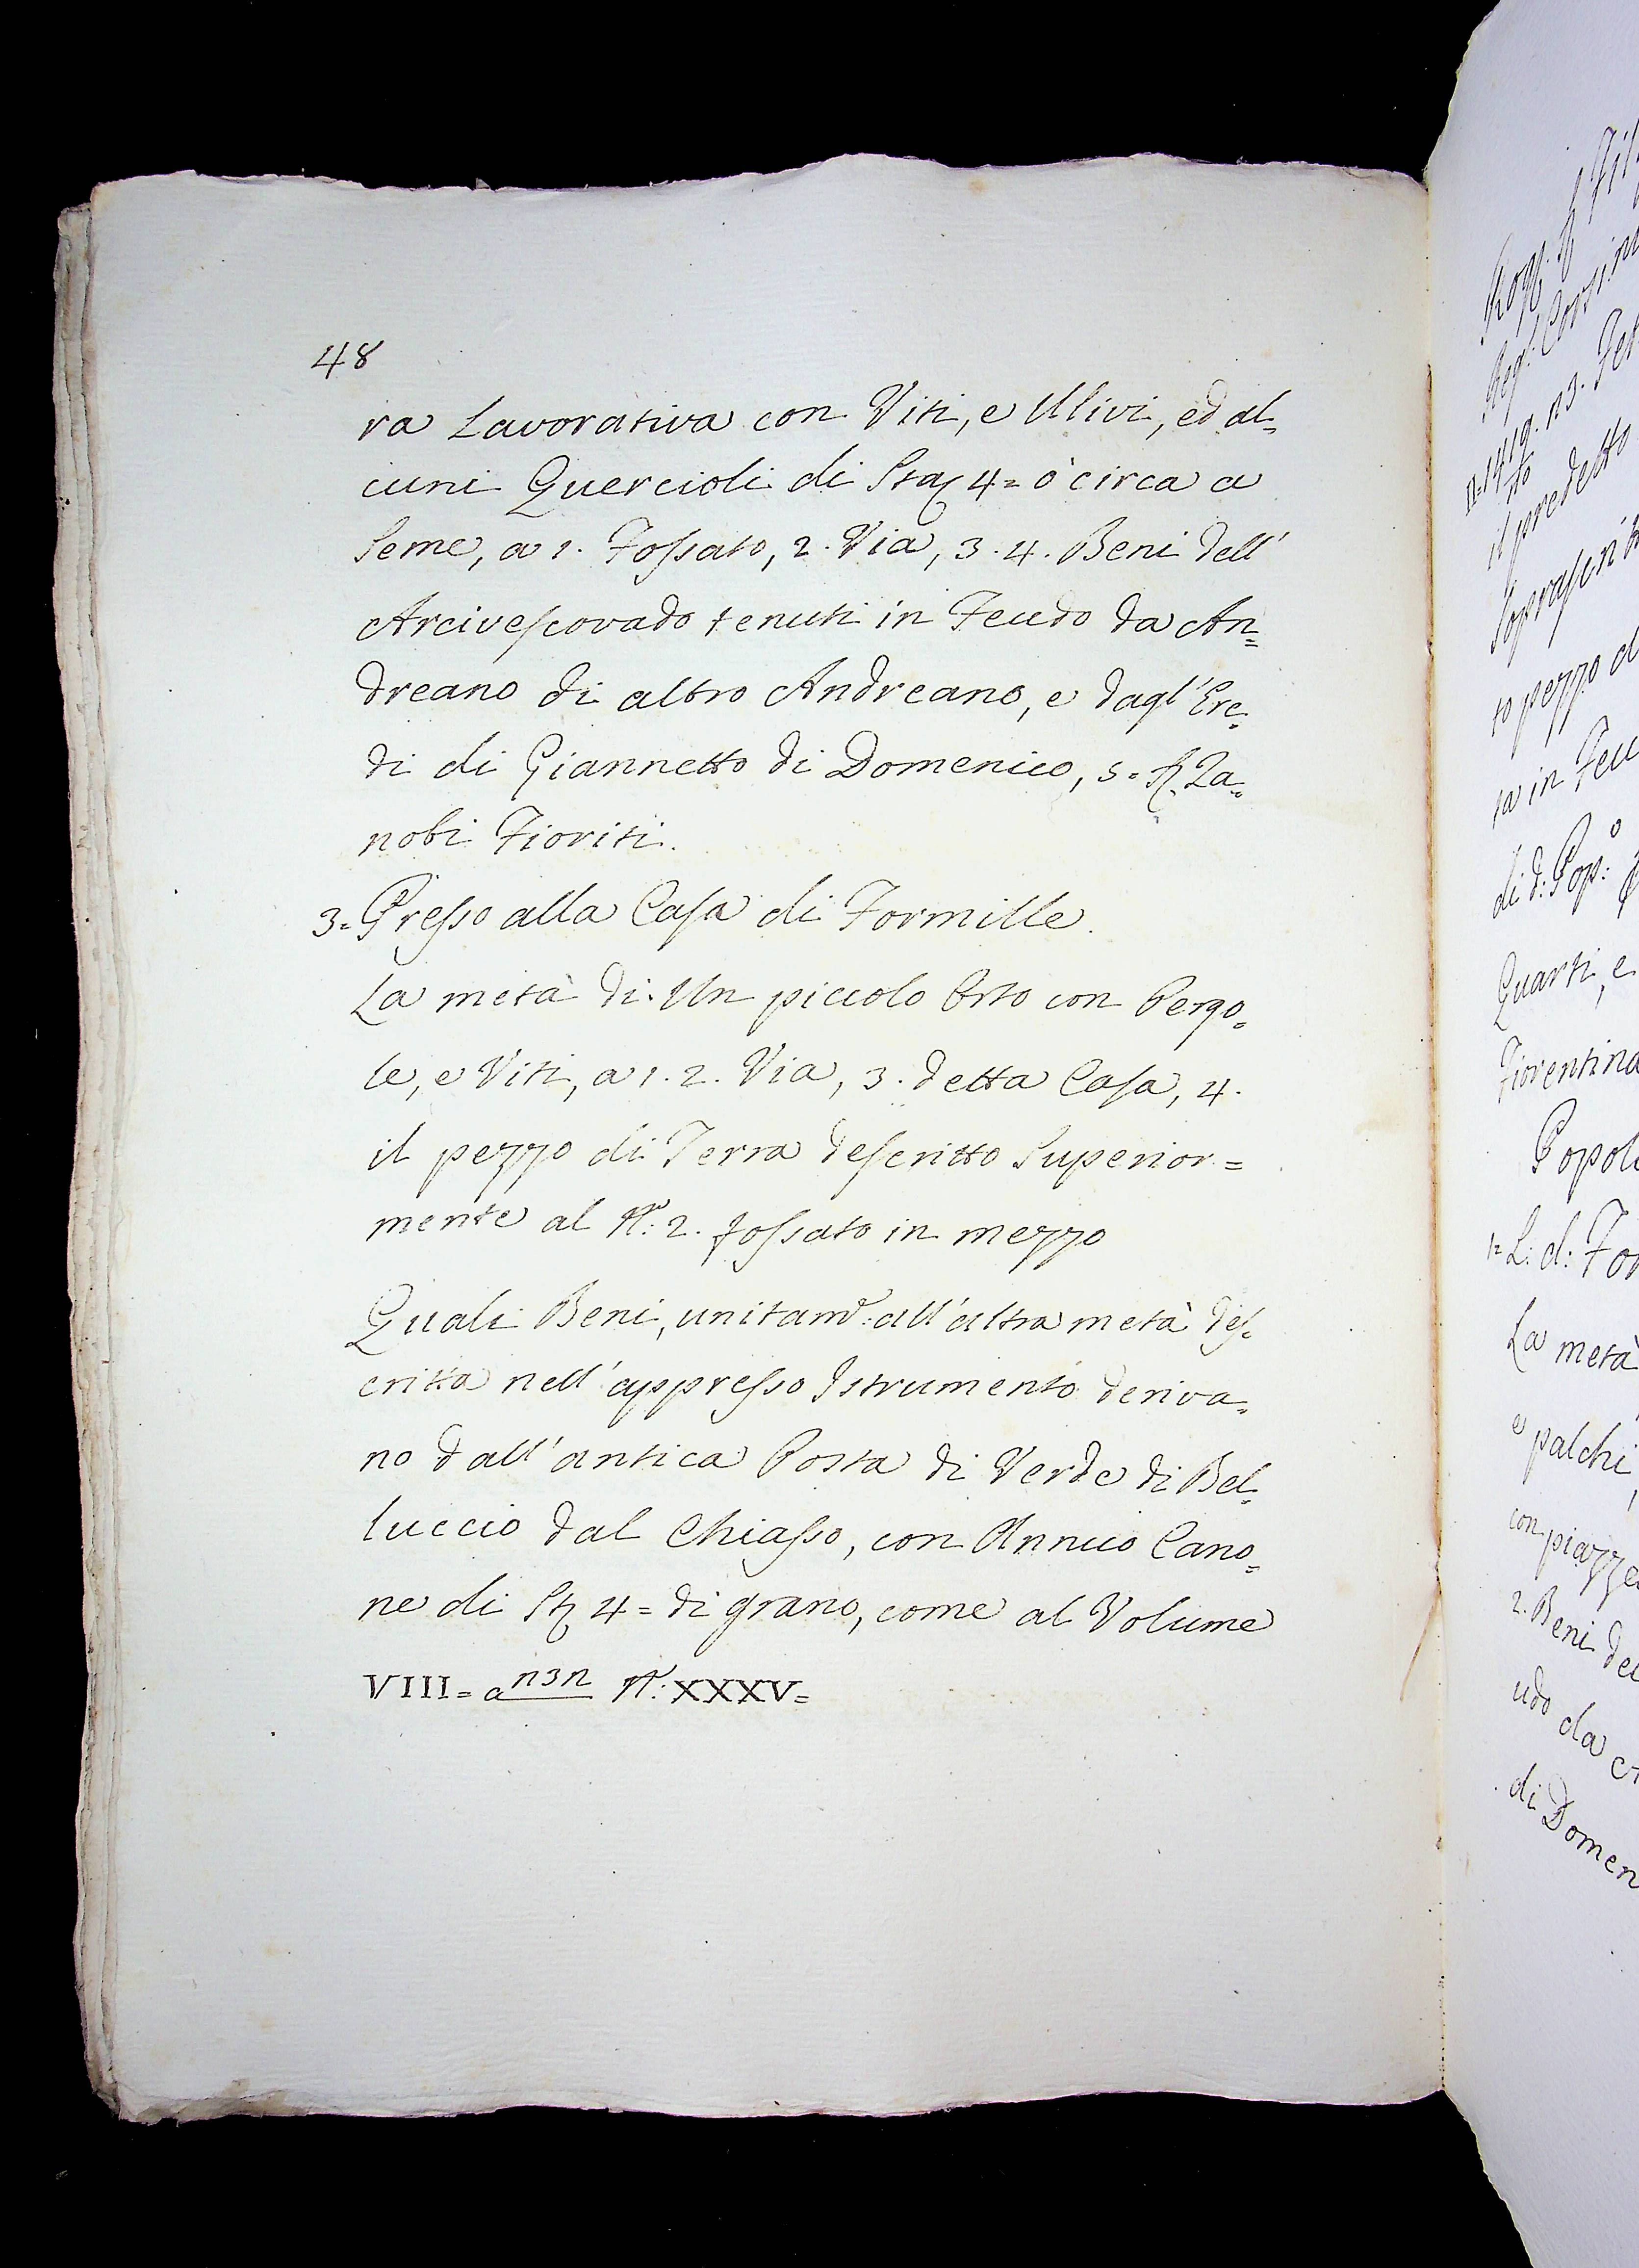 48
ra Lavorativa con Viti, e Ulivi, ed al=
cuni Quercioli di Sta 4= ò circa a
Seme, a 1. Fossato, 2. Via, 3. 4. Beni dell'
Arcivescovado tenuti in Feudo da An=
dreano di altro Andreano, e dagl'Ere=
di di Giannetto di Domenico, 5= Za=
nobi Fioriti.
3= Presso alla Casa di Formille.
La metà di Un piccolo Orto con Pergo=
le, e Viti, a 1. 2. Via, 3. detta Casa, 4.
il pezzo di Terra descritto Superior=
mente al N.° 2. fossato in mezzo
Quali Beni, unitam.e all'altra metà des=
critta nell'appresso Istrumento deriva=
no dall'antica Posta di Verde di Bel=
luccio dal Chiasso, con Annuo Cano=
ne di St 4= di grano, come al Volume
VIII= a n3n N.° XXXV=
Reg. Corsin
n=1419. n3. Fe
il predetto
Soprascrit
to pezzo d
ta in Feu
di d: Pop:o
Quarti, e
Fiorentina
Popol
1= L: d: For
La metà
e palchi,
con piazza
2. Beni del
udo da
di Domen